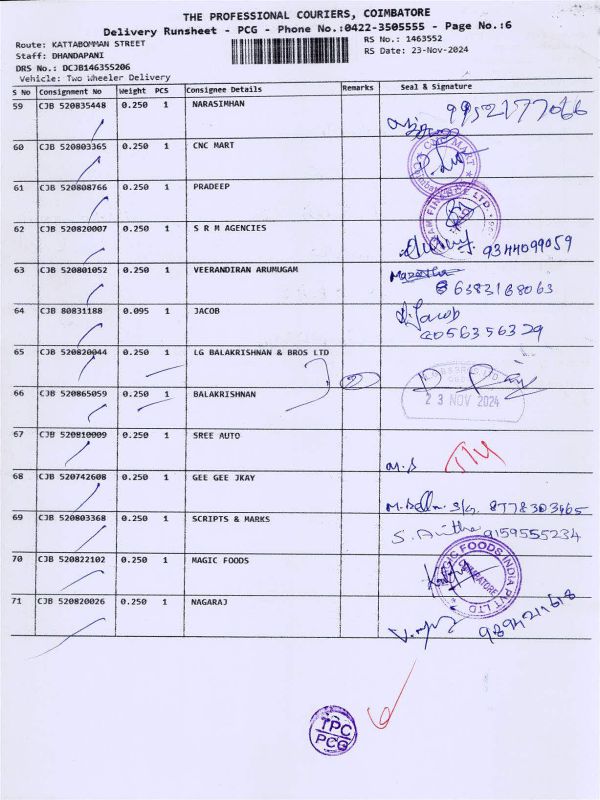 THE PROFESSIONAL COURIERS, COIMBATORE
Delivery Runsheet - PCG - Phone No.:0422-3505555 - Page No.:6
Route: KATTABOMMAN STREET
RS No.: 1463552
Staff: DHANDAPANI
RS Date: 23-Nov-2024
DRS No.: DCJB146355206
Vehicle: Two Wheeler Delivery
S No Consignment No Weight PCS Consignee Details Remarks Seal & Signature
59 CJB 520835448 0.250 1 NARASIMHAN 9952177066
60 CJB 520803365 0.250 1 CNC MART
61 CJB 520808766 0.250 1 PRADEEP
62 CJB 520820007 0.250 1 S R M AGENCIES 9344099059
63 CJB 520801052 0.250 1 VEERANDIRAN ARUMUGAM 6383168063
64 CJB 80831188 0.095 1 JACOB Jacob
65 CJB 520820044 0.250 1 LG BALAKRISHNAN & BROS LTD
66 CJB 520865059 0.250 1 BALAKRISHNAN 2 23 NOV 2024
67 CJB 520810009 0.250 1 SREE AUTO
68 CJB 520742608 0.250 1 GEE GEE JKAY
69 CJB 520803368 0.250 1 SCRIPTS & MARKS S. Anitha 9159555234
70 CJB 520822102 0.250 1 MAGIC FOODS MAGIC FOODS INDIA PVT LTD COIMBATORE
71 CJB 520820026 0.250 1 NAGARAJ
TPC
PCG